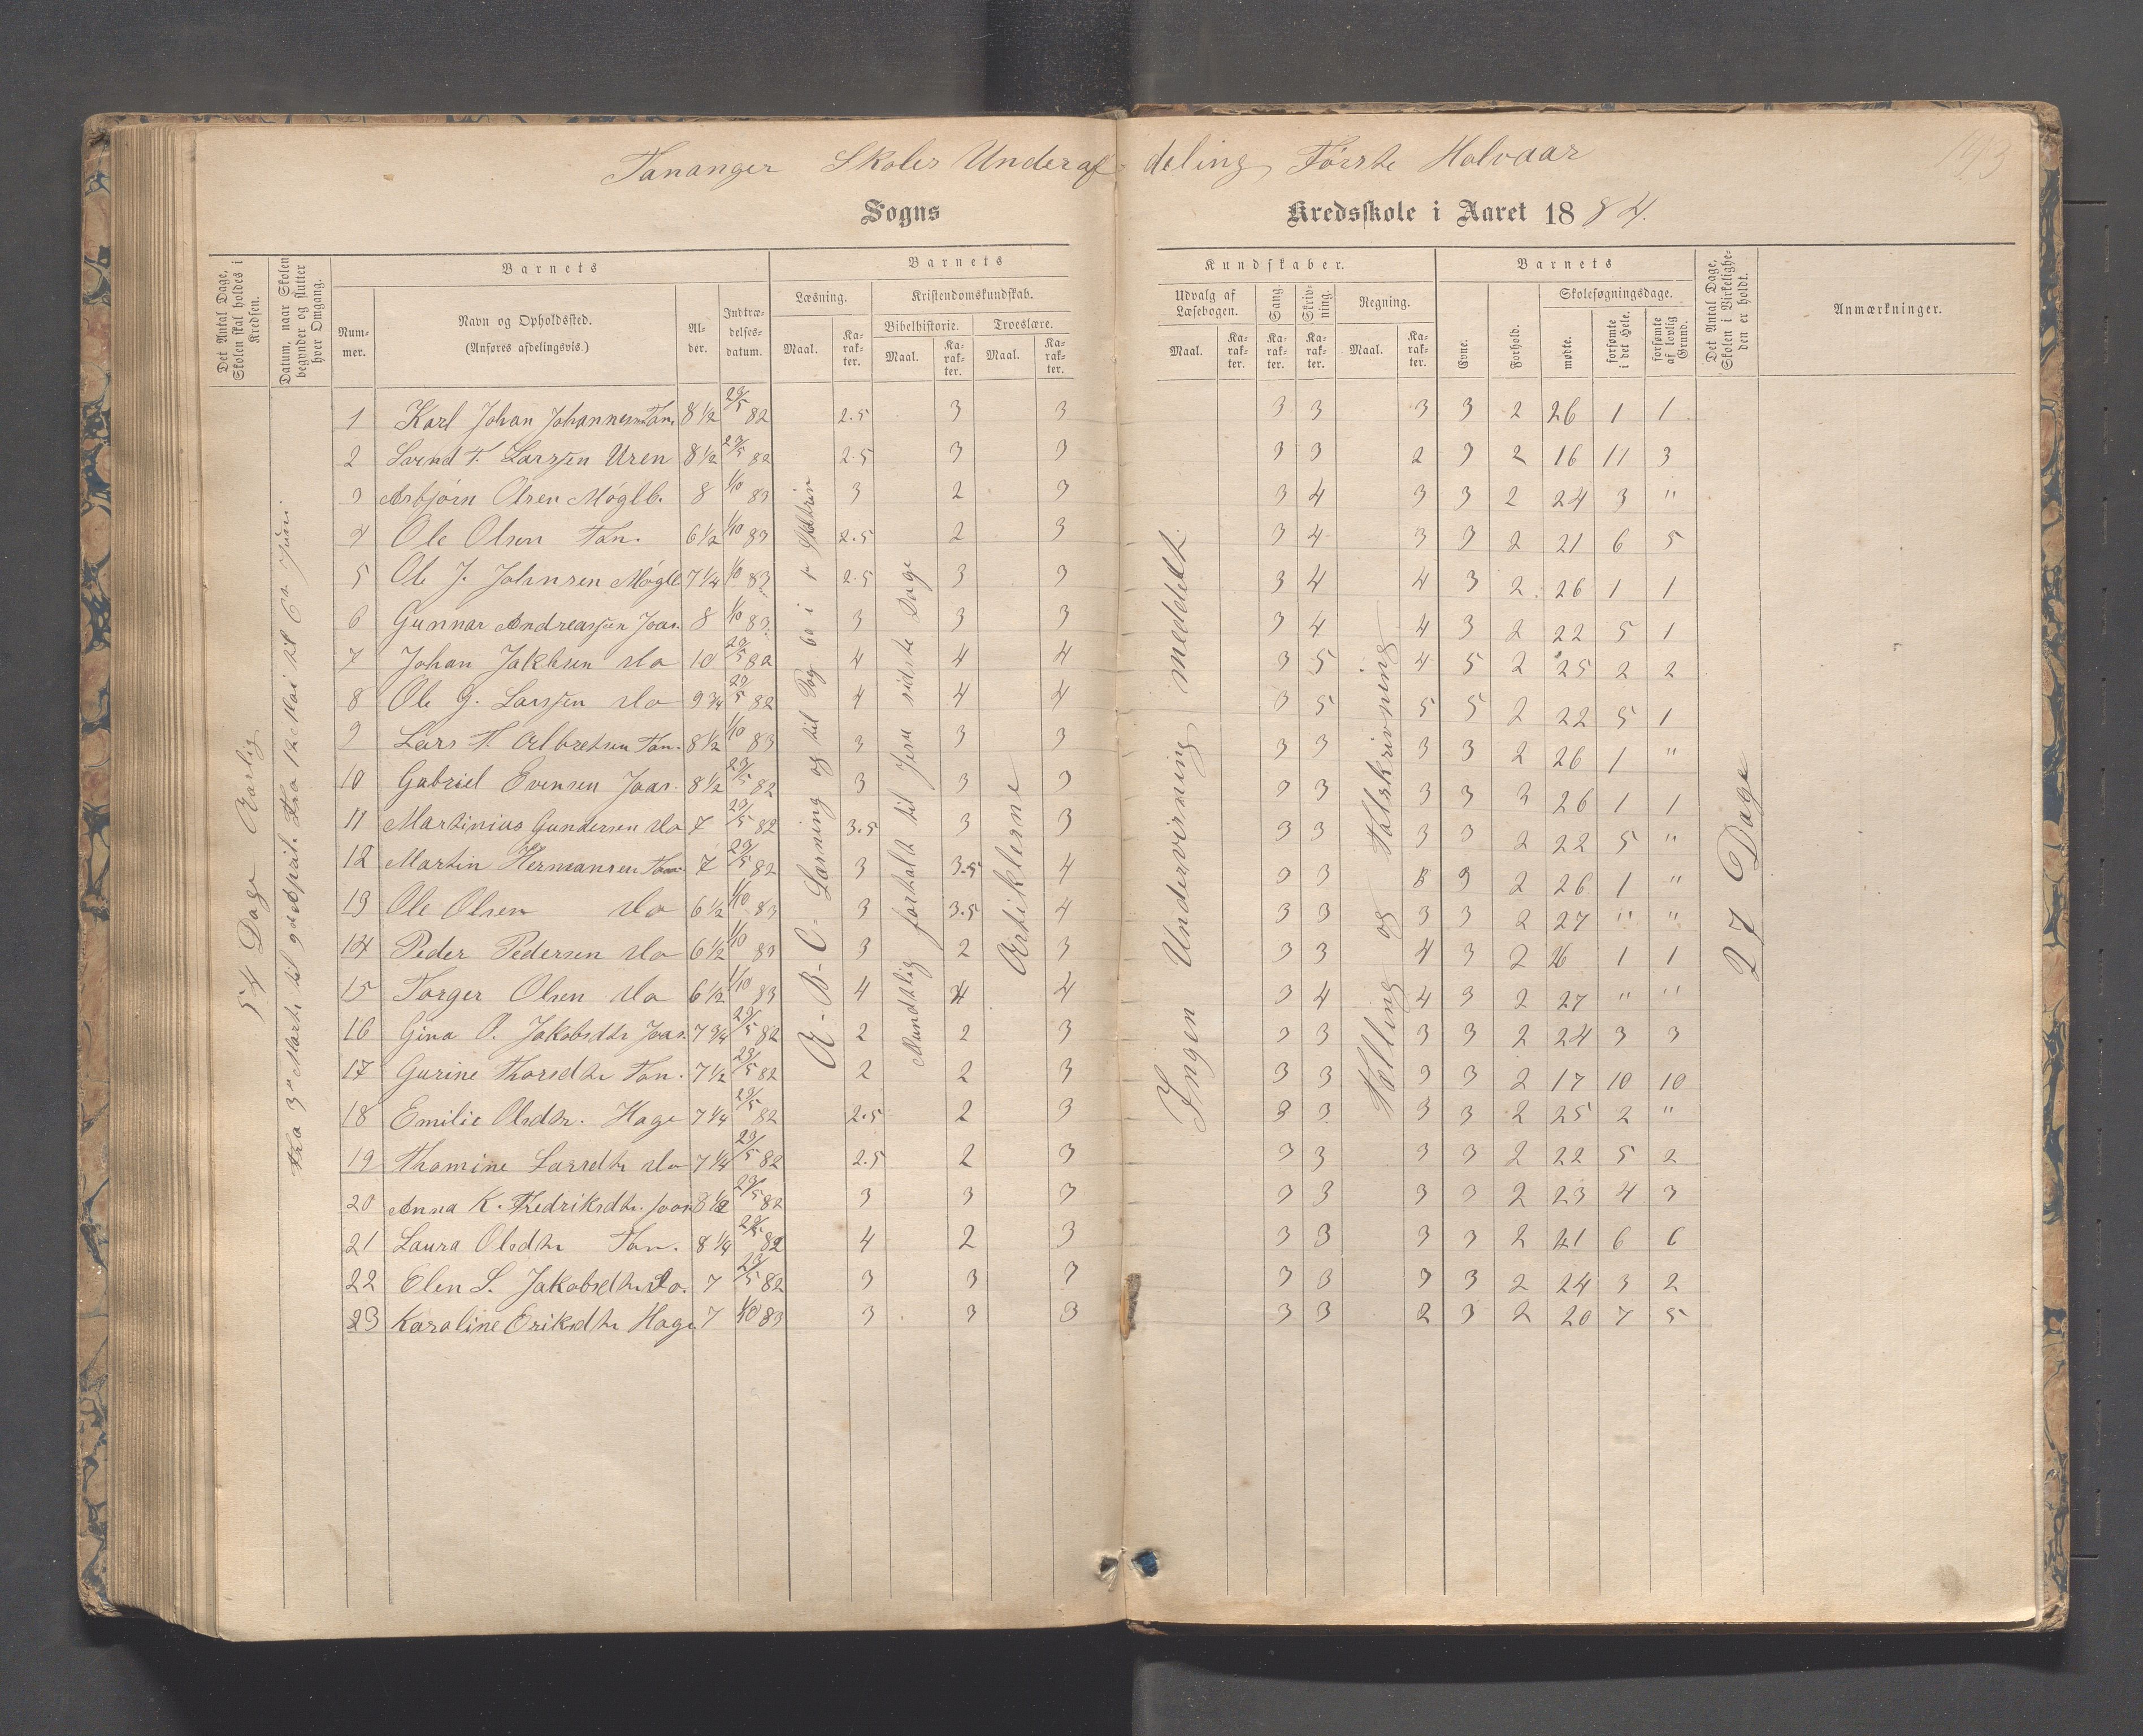 Tananger Skoles Underafdeling Første Halvaar
193
Sogns Kredsskole i Aaret 1884.
Det Antal Dage, Skolen skal holdes i Kredsen.
Datum, naar Skolen begynder og slutter hver Omgang.
Barnets
Nummer.
Navn og Opholdssted.
(Anføres afdelingsvis.)
Alder.
Indtrædelsesdatum.
Barnets Kundskaber.
Læsning.
Kristendomskundskab.
Bibelhistorie.
Troeslære.
Maal. Karakter. Maal. Karakter. Maal. Karakter.
Udvalg af Læsebogen.
Maal. Karakter.
Sang. Karakter.
Skrivning. Karakter.
Regning.
Maal. Karakter.
Barnets
Evne. Forhold.
Skolesøgningsdage.
mødte. forsømte i det Hele. forsømte af lovlig Grund.
Det Antal Dage, Skolen i Virkeligheden er holdt.
Anmærkninger.
54 Dage Aarlig
Fra 3die Marts til 9de April. Fra 12te Mai til 6te Juni.
A-B-C- Læsning og til Pag 60 i
Mundtlig fortalt til Jesu sidste Dage
Artiklerne
Ingen Undervisning meddelt.
Tælling og Talskrivning
27 Dage
1 Karl Johan Johannesen Tan. 8 1/2 29/5 82 2.5 3 3 3 3 3 3 2 26 1 1
2 Svend T. Larssen Uren 8 1/2 29/5 82 2.5 3 3 3 3 2 3 2 16 11 3
3 Asbjørn Olsen Møglb. 8 1/10 83 3 2 3 3 4 3 3 2 24 3 "
4 Ole Olsen Tan. 6 1/2 1/10 83 2.5 2 3 3 4 3 3 2 21 6 5
5 Ole J. Johnsen Møglb 7 1/4 1/10 83 2.5 3 3 3 4 4 3 2 26 1 1
6 Gunnar Andreassen Joas. 8 1/10 83 3 3 3 3 4 4 3 2 22 5 1
7 Johan Jakbsen do 10 29/5 82 4 4 4 3 5 4 5 2 25 2 2
8 Ole G. Larssen do 9 3/4 29/5 82 4 4 4 3 5 5 5 2 22 5 1
9 Lars T. Albretsen Tan. 8 1/2 1/10 83 3 3 3 3 3 3 3 2 26 1 "
10 Gabriel Evensen Joas. 8 1/2 29/5 82 3 3 3 3 3 3 3 3 26 1 1
11 Martinius Gundersen do 7 29/5 82 3.5 3 3 3 3 3 3 2 22 5 "
12 Martin Hermansen Tan. 7 29/5 82 3 3.5 4 3 3 3 3 2 26 1 "
13 Ole Olsen do 6 1/2 1/10 83 3 3.5 4 3 3 3 3 2 27 " "
14 Peder Pedersen do 6 1/2 1/10 83 3 2 3 3 3 4 3 2 26 1 1
15 Torger Olsen do 6 1/2 1/10 83 4 4 4 3 4 4 3 2 27 " "
16 Gina O. Jakobsdtr Joas. 7 3/4 29/5 82 2 2 3 3 3 3 3 2 24 3 3
17 Gurine Thorsdtr Tan. 7 1/2 29/5 82 2 2 3 3 3 3 3 2 17 10 10
18 Emilie Olsdtr. Hage 7 1/4 29/5 82 2.5 2 3 3 3 3 3 2 25 2 "
19 Thomine Larsdtr do 7 1/4 29/5 82 2.5 2 3 3 3 3 3 2 22 5 2
20 Anna K. Fredriksdtr. Joas 8 1/2 29/5 82 3 3 3 3 3 3 3 2 23 4 3
21 Laura Olsdtr Tan. 8 1/4 29/5 82 4 2 3 3 3 3 3 2 21 6 6
22 Elen S. Jakobsdtr do. 7 29/5 82 3 3 3 3 3 3 3 2 24 3 2
23 Karoline Eriksdtr Hage 7 1/10 83 3 3 3 3 3 2 3 2 20 7 5